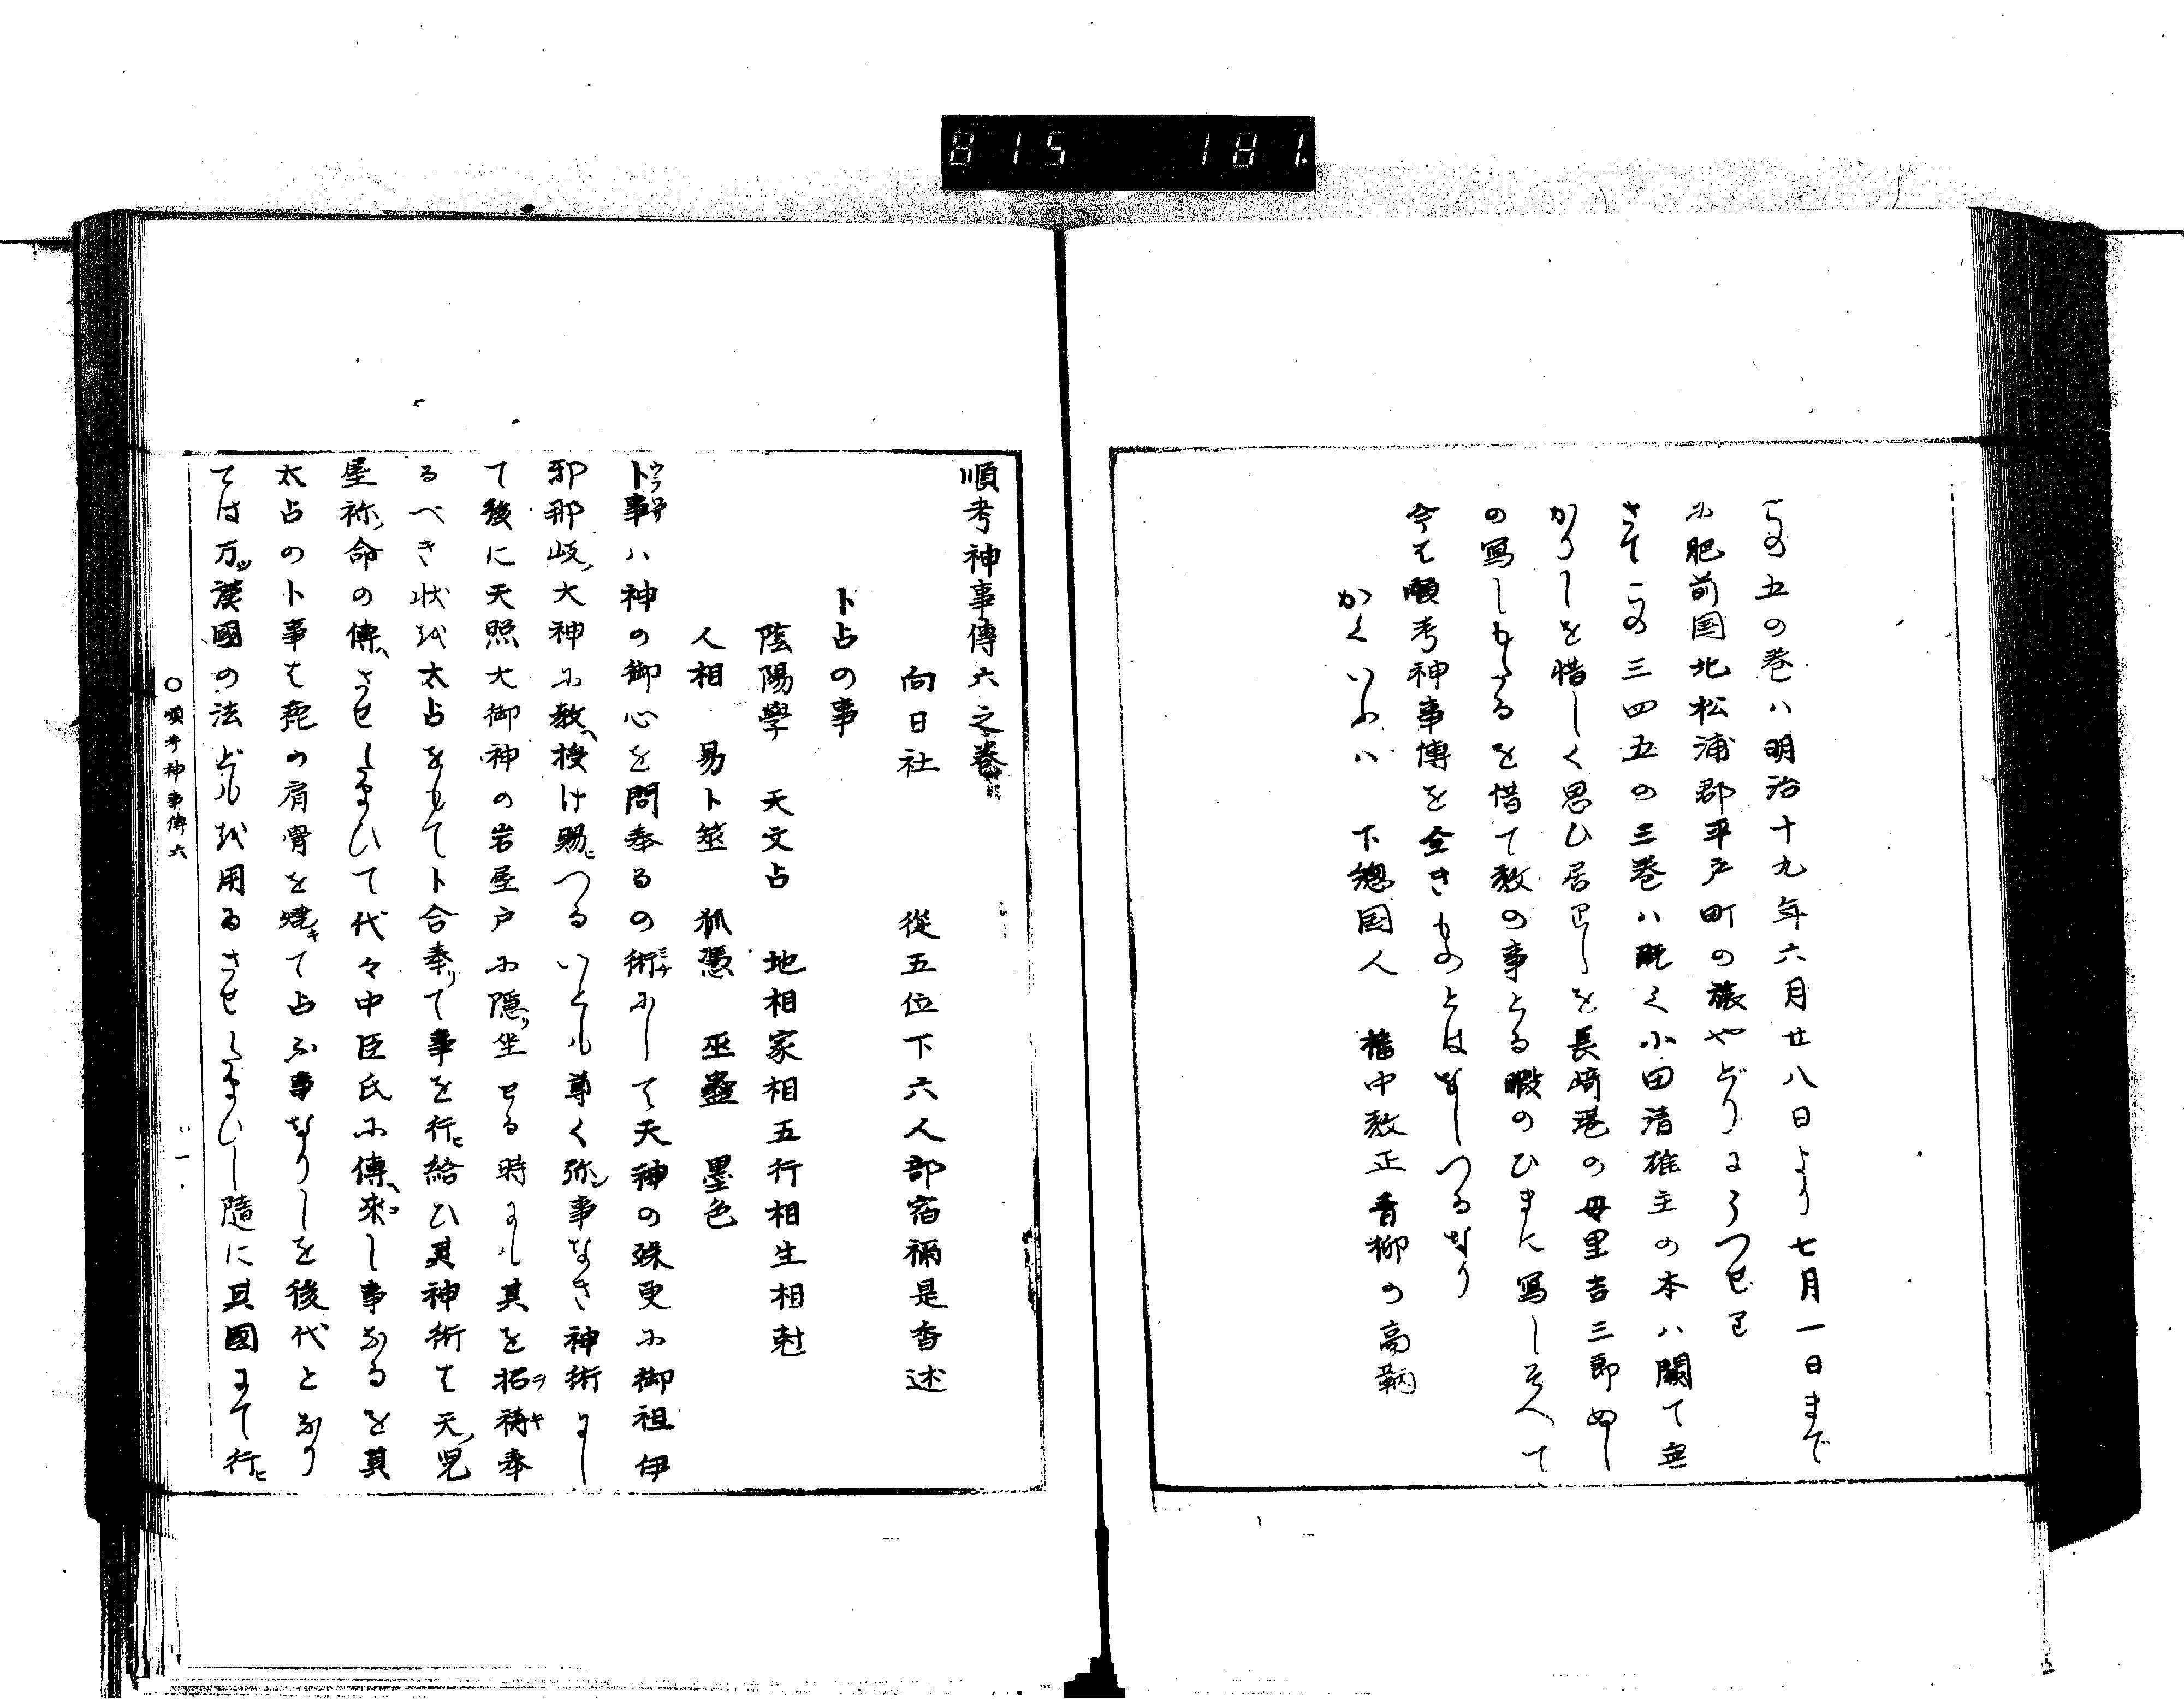 815 181.
この五の巻ハ明治十九年六月廿八日より七月一日まで
に肥前国北松浦郡平戸町の旅やどりにうつせり
さてこの三四五の三巻ハ既く小田清雄主の本ハ闕て無
かりしを惜しく思ひ居りしを長崎港の母里吉三郎ぬし
の寫しもたるを借て教の事とる暇のひまに寫しそへて
今は順考神事傳を全きものとはなしつるなり
かくいふハ 下總国人 權中教正青柳の高鞆
順考神事傳六之巻
向日社 從五位下六人部宿禰是香述
卜占の事
陰陽學 天文占 地相家相五行相生相尅
人相 易卜筮 狐憑 巫蠱 墨色
卜事ハ神の御心を問奉るの術にして天神の殊更に御祖伊
邪那岐ノ大神に教ヘ授け賜ヒつるいとも尊く弥シ事なき神術にし
て後に天照大御神の岩屋戸に隱リ坐せる時にも其を招ヲ祷キ奉
るべき状を太占をもて卜合奉リて事を行ヒ給ひ其神術は天ノ児
屋祢ノ命の傳ヘさせたまひて代々中臣氏に傳ヘ来コし事なるを其
太占の卜事は鹿の肩骨を焼キて占ふ事なりしを後代となり
ては万ツ漢國の法どもを用ゐさせたまひし隨に其國にて行ヒ
〇順考神事傳六
一